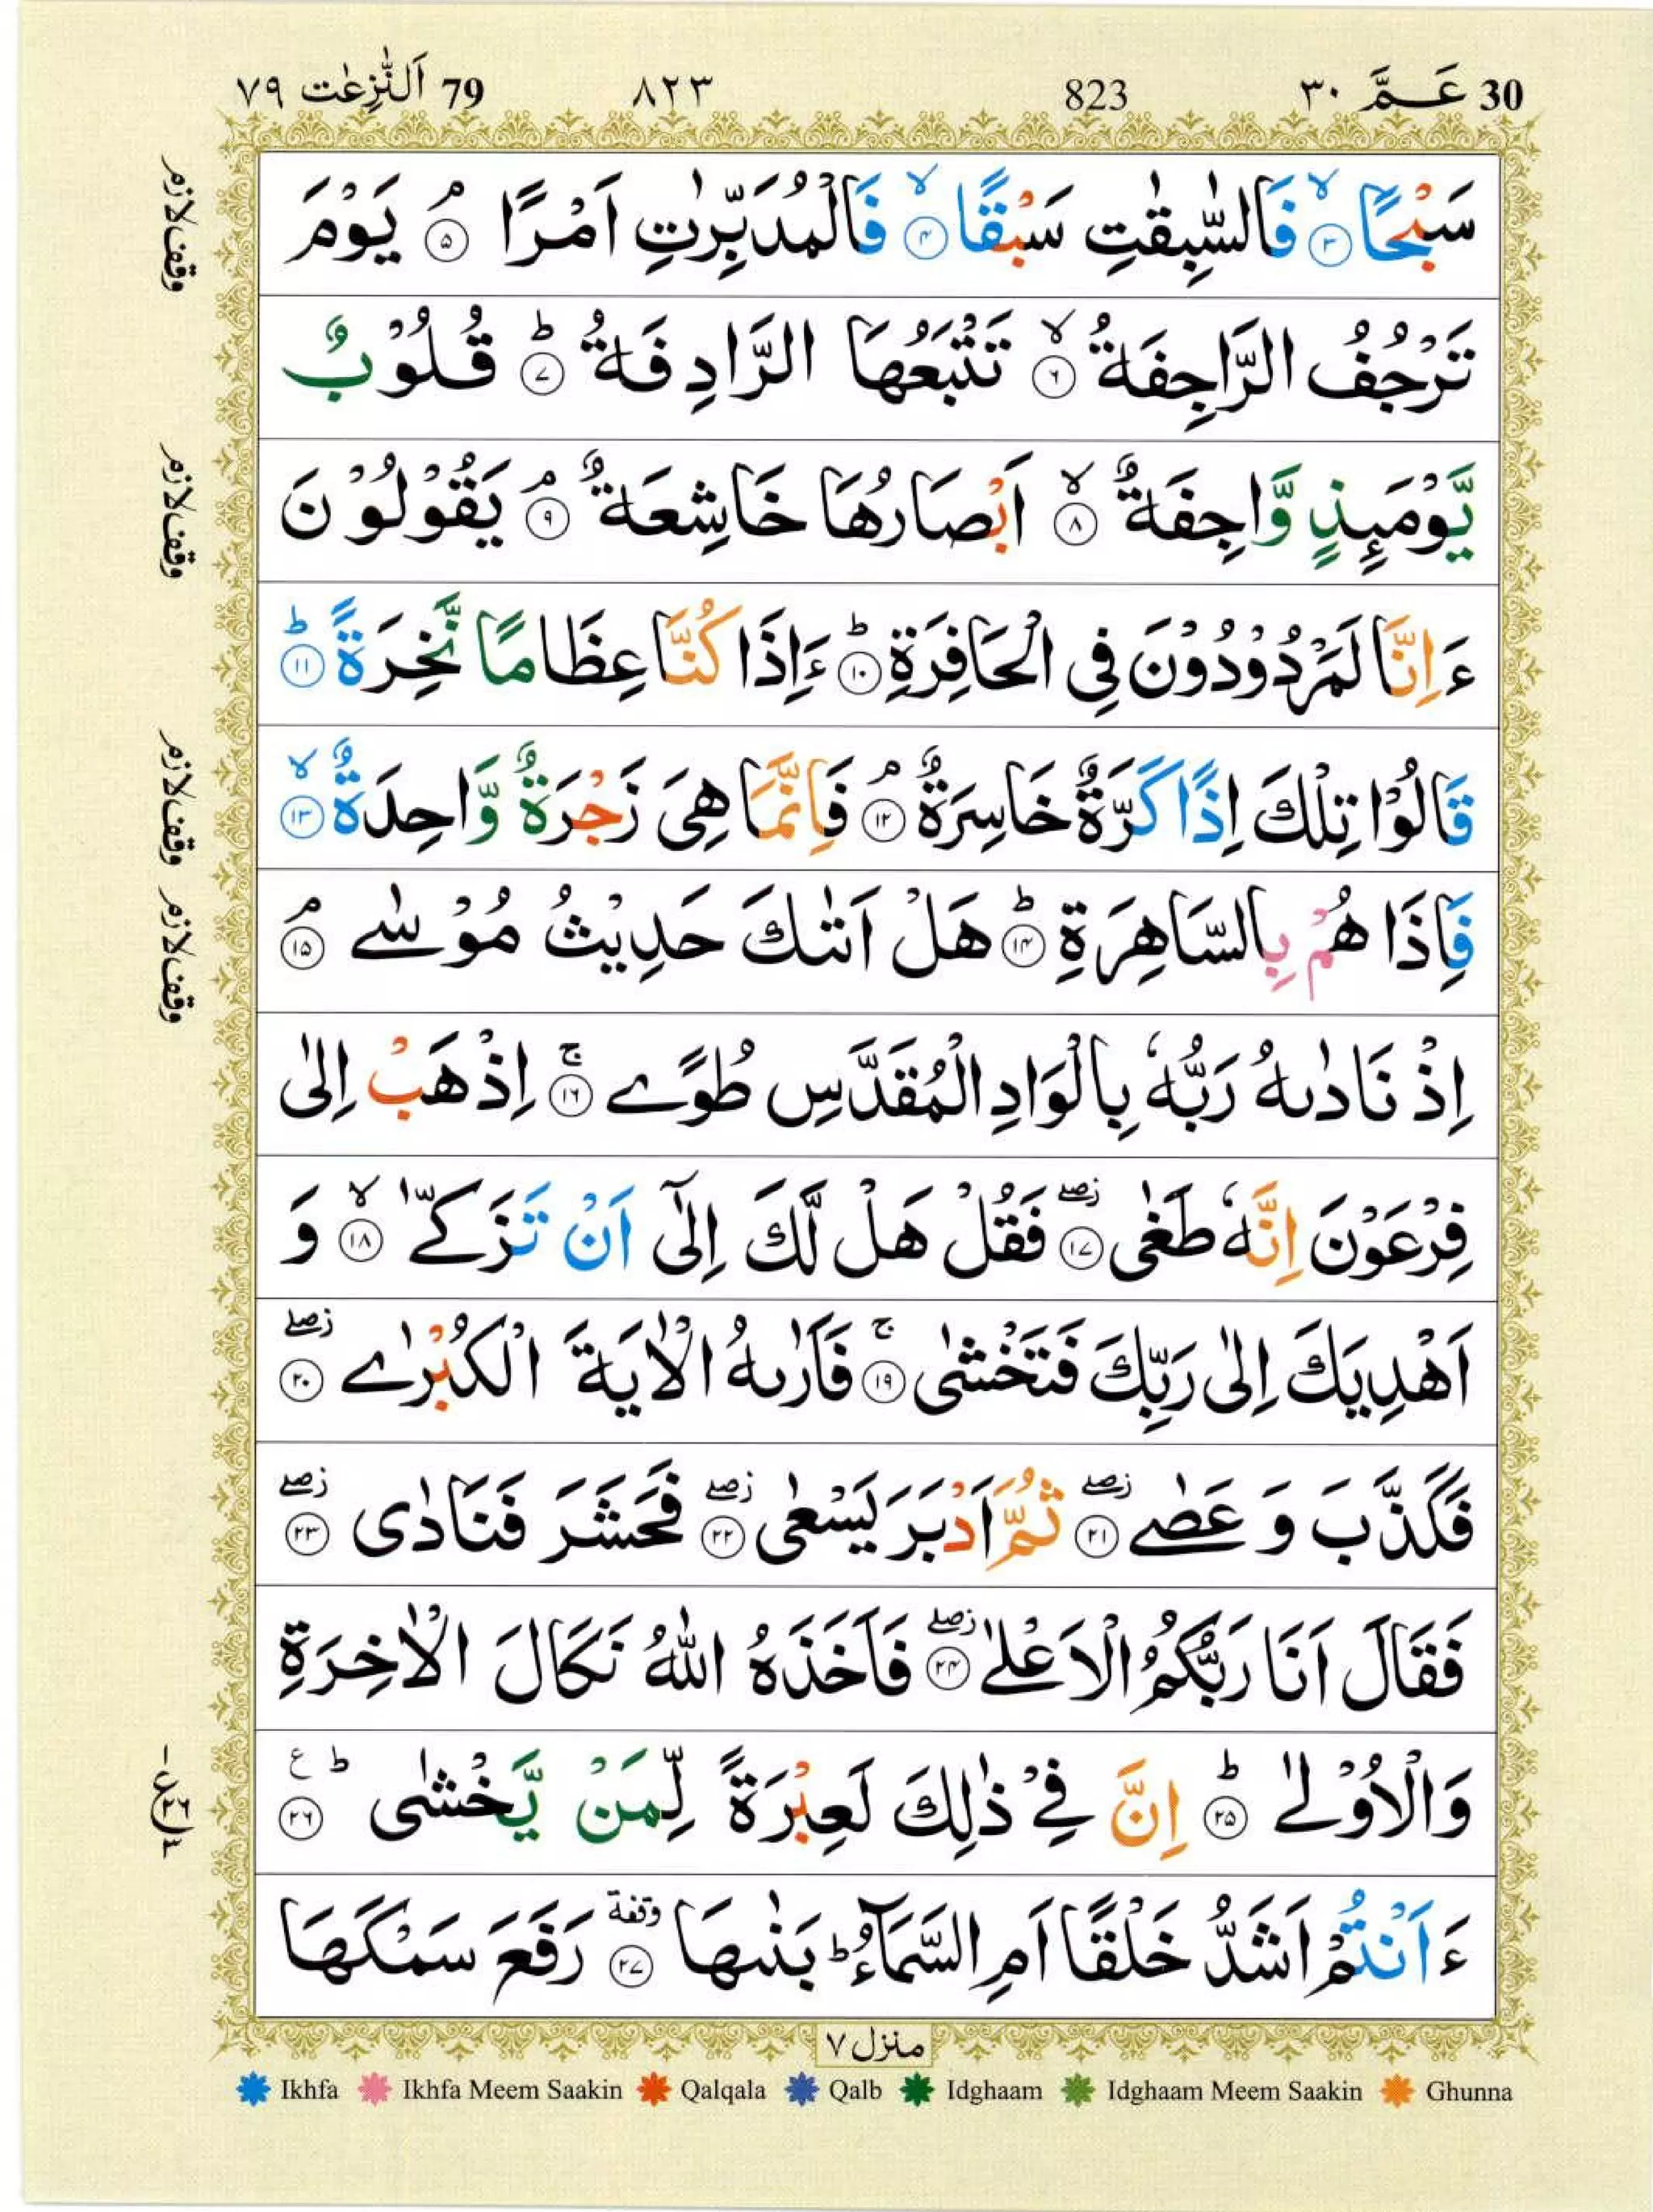 30 عَمَّ ٣٠ 823 ٨٢٣ 79 اَلنّٰزِعٰت ٧٩
سَبْحًا ۙ﴿٣﴾ فَالسّٰبِقٰتِ سَبْقًا ۙ﴿٤﴾ فَالْمُدَبِّرٰتِ اَمْرًا ۘ﴿٥﴾ يَوْمَ
وقف لازم
تَرْجُفُ الرَّاجِفَةُ ۙ﴿٦﴾ تَتْبَعُهَا الرَّادِفَةُ ؕ﴿٧﴾ قُلُوْبٌ
يَّوْمَئِذٍ وَّاجِفَةٌ ۙ﴿٨﴾ اَبْصَارُهَا خَاشِعَةٌ ۘ﴿٩﴾ يَقُوْلُوْنَ
وقف لازم
ءَاِنَّا لَمَرْدُوْدُوْنَ فِى الْحَافِرَةِ ؕ﴿١٠﴾ ءَاِذَا كُنَّا عِظَامًا نَّخِرَةً ؕ﴿١١﴾
قَالُوْا تِلْكَ اِذًا كَرَّةٌ خَاسِرَةٌ ۘ﴿١٢﴾ فَاِنَّمَا هِىَ زَجْرَةٌ وَّاحِدَةٌ ۙ﴿١٣﴾
وقف لازم
فَاِذَا هُمْ بِالسَّاهِرَةِ ؕ﴿١٤﴾ هَلْ اَتٰىكَ حَدِيْثُ مُوْسٰے ۘ﴿١٥﴾
وقف لازم
اِذْ نَادٰىهُ رَبُّهٗ بِالْوَادِ الْمُقَدَّسِ طُوًے ۚ﴿١٦﴾ اِذْهَبْ اِلٰى
فِرْعَوْنَ اِنَّهٗ طَغٰى ۖ﴿١٧﴾ فَقُلْ هَلْ لَّكَ اِلٰٓى اَنْ تَزَكّٰے ۙ﴿١٨﴾ وَ
اَهْدِيَكَ اِلٰى رَبِّكَ فَتَخْشٰى ۚ﴿١٩﴾ فَاَرٰىهُ الْاٰيَةَ الْكُبْرٰے ۖ﴿٢٠﴾
فَكَذَّبَ وَ عَصٰے ۖ﴿٢١﴾ ثُمَّ اَدْبَرَ يَسْعٰى ۖ﴿٢٢﴾ فَحَشَرَ فَنَادٰى ۖ﴿٢٣﴾
فَقَالَ اَنَا رَبُّكُمُ الْاَعْلٰے ۖ﴿٢٤﴾ فَاَخَذَهُ اللّٰهُ نَكَالَ الْاٰخِرَةِ
وَالْاُوْلٰے ؕ﴿٢٥﴾ اِنَّ فِىْ ذٰلِكَ لَعِبْرَةً لِّمَنْ يَّخْشٰى ؕ﴿٢٦﴾ ع
ءَاَنْتُمْ اَشَدُّ خَلْقًا اَمِ السَّمَآءُ ؕ بَنٰىهَا وقفة﴿٢٧﴾ رَفَعَ سَمْكَهَا
منزل ٧
Ikhfa Ikhfa Meem Saakin Qalqala Qalb Idghaam Idghaam Meem Saakin Ghunna